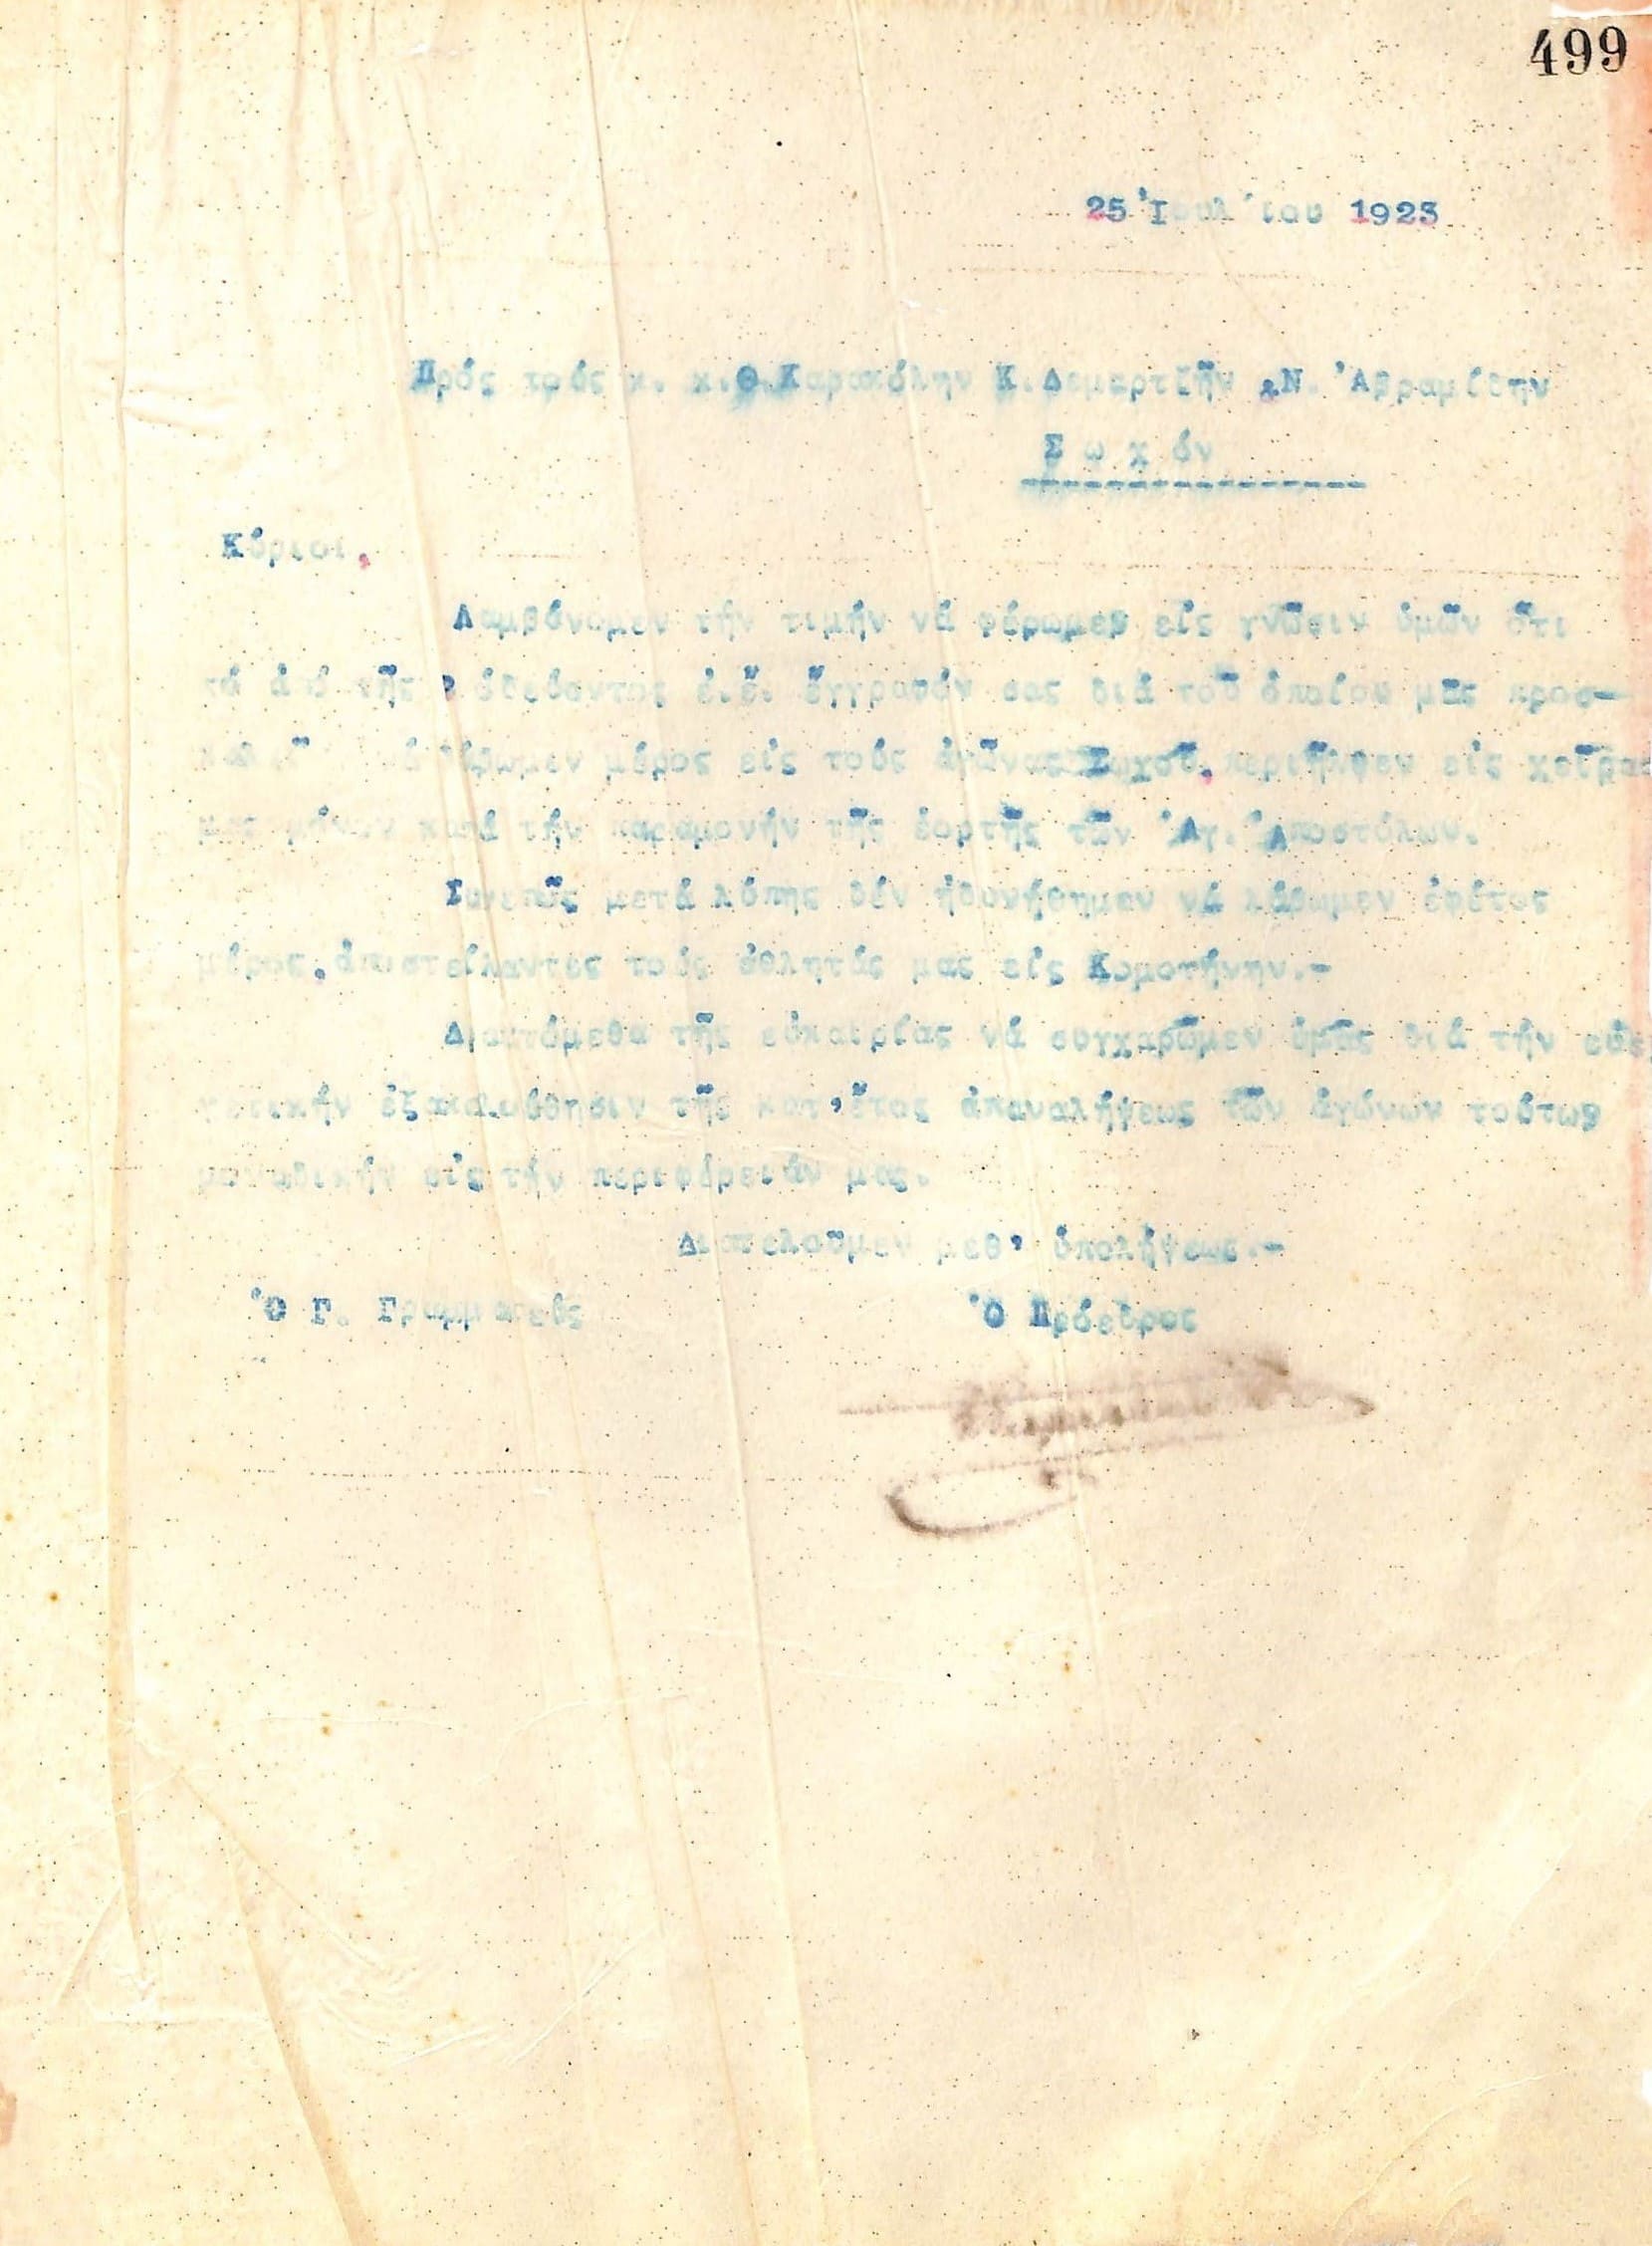 499
25 Ἰουλίου 1923
Πρός τούς κ. κ. Θ. Καρακόλην Κ. Δεμερτζῆν & Ν. Ἀβραμίδην
Σ ω χ όν
Κύριοι,
Λαμβάνομεν τήν τιμήν νά φέρωμεν εἰς γνῶσιν ὑμῶν ὅτι
τό ἀπό τῆς ἐ.ἔ. ἔγγραφόν σας διά τοῦ ὁποίου μᾶς προσ-
νά λάβωμεν μέρος εἰς τούς ἀγῶνας Σωχοῦ, περιῆλθεν εἰς χεῖρας
μας μόνον κατά τήν παραμονήν τῆς ἑορτῆς τῶν Ἁγ. Ἀποστόλων.
Συνεπῶς μετά λύπης δέν ἠδυνήθημεν νά λάβωμεν ἐφέτος
μέρος, ἀποστείλαντες τούς ἀθλητάς μας εἰς Κομοτήνην.-
Δραττόμεθα τῆς εὐκαιρίας νά συγχαρῶμεν ὑμᾶς διά τήν εὐερ
γετικήν ἐξακολούθησιν τῆς κατ' ἔτος ἐπαναλήψεως τῶν ἀγώνων τούτων
μοναδικήν εἰς τήν περιφέρειάν μας.
Διατελοῦμεν μεθ' ὑπολήψεως.-
Ὁ Γ. Γραμματεύς Ὁ Πρόεδρος